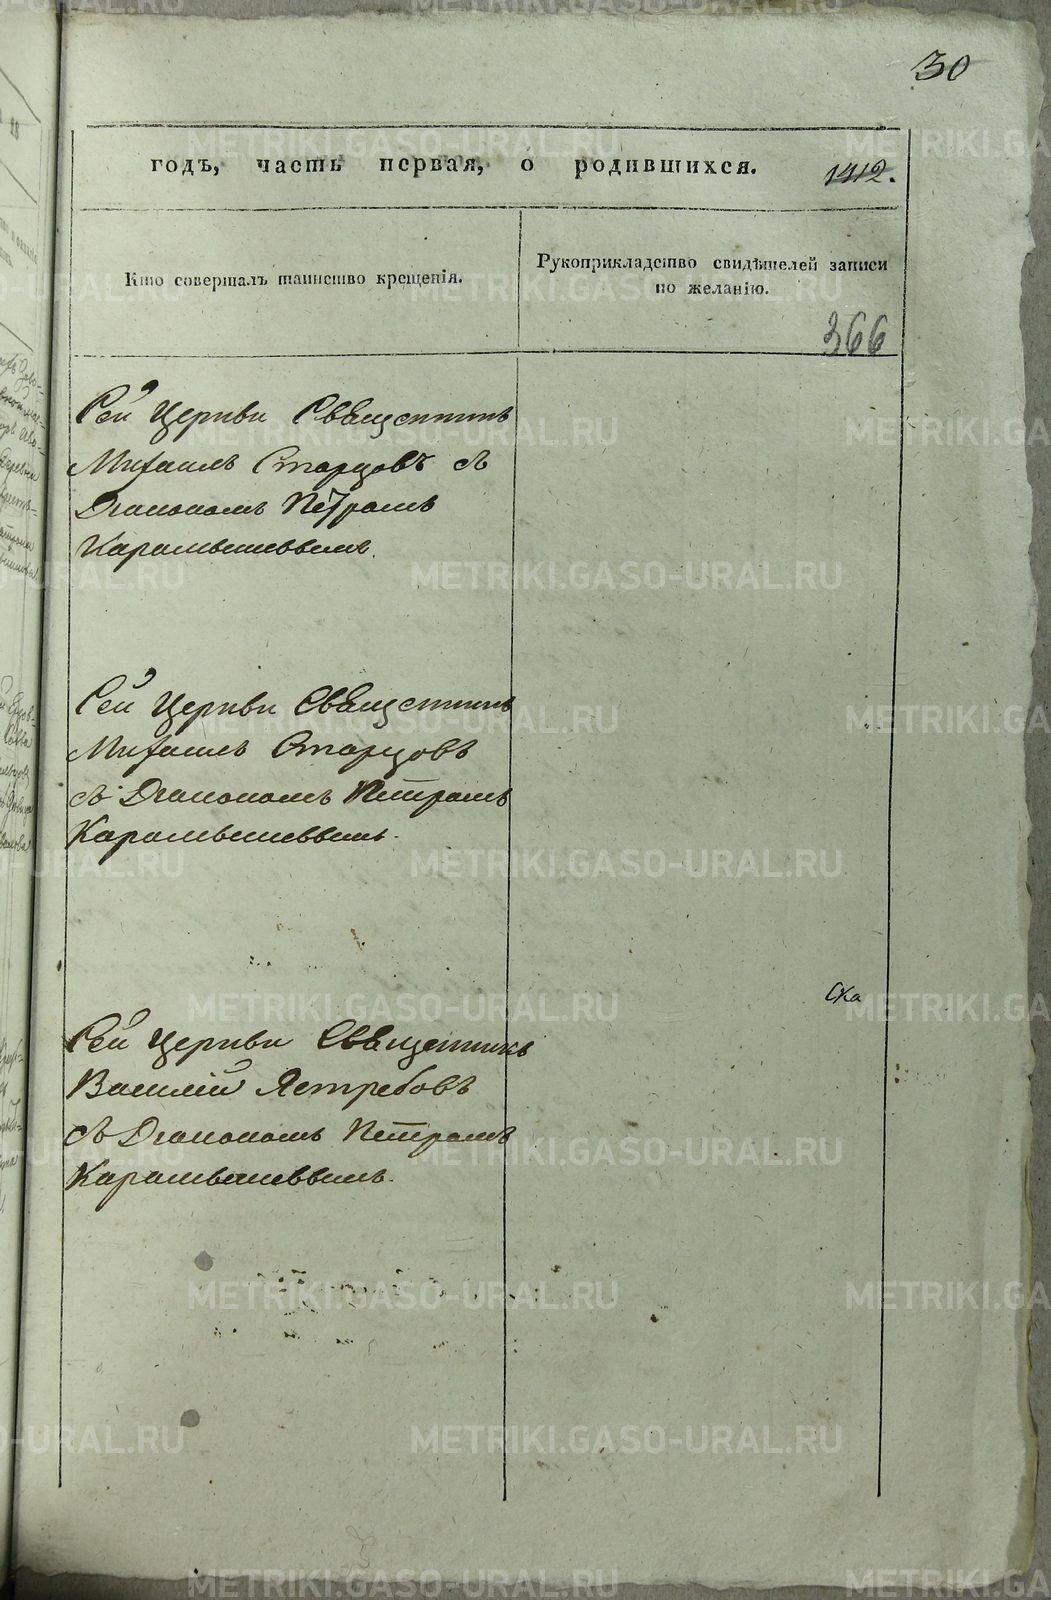 30
годъ, часть первая, о родившихся. 1412.
Кто совершалъ таинство крещенія.
Рукоприкладство свидѣтелей записи
по желанію.
366
Сей Церкви Священникъ
Михаилъ Старцовъ съ
Діакономъ Петромъ
Карамышевымъ.
Сей Церкви Священникъ
Михаилъ Старцовъ
съ Діакономъ Петромъ
Карамышевымъ.
Ска
Сей Церкви Священникъ
Василій Ястребовъ
съ Діакономъ Петромъ
Карамышевымъ.
METRIKI.GASO-URAL.RU